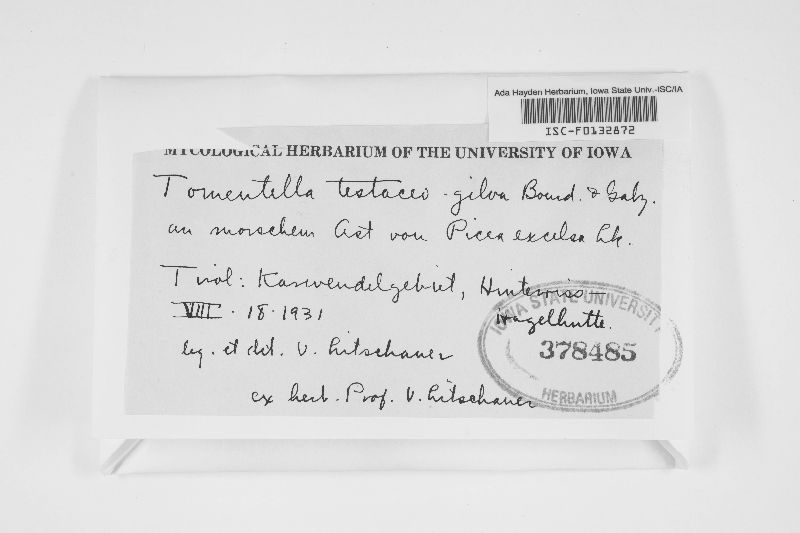 Ada Hayden Herbarium, Iowa State Univ.-ISC/IA
ISC-F0132872
MYCOLOGICAL HERBARIUM OF THE UNIVERSITY OF IOWA
Tomentella testaceo-gilva Bourd. & Galz.
an morschem Ast von Picea excelsa Lk.
Tirol: Karwendelgebiet, Hinterriss-
Hagelhütte.
VIII · 18 · 1931
leg. et det. V. Litschauer
ex herb. Prof. V. Litschauer
IOWA STATE UNIVERSITY
378485
HERBARIUM